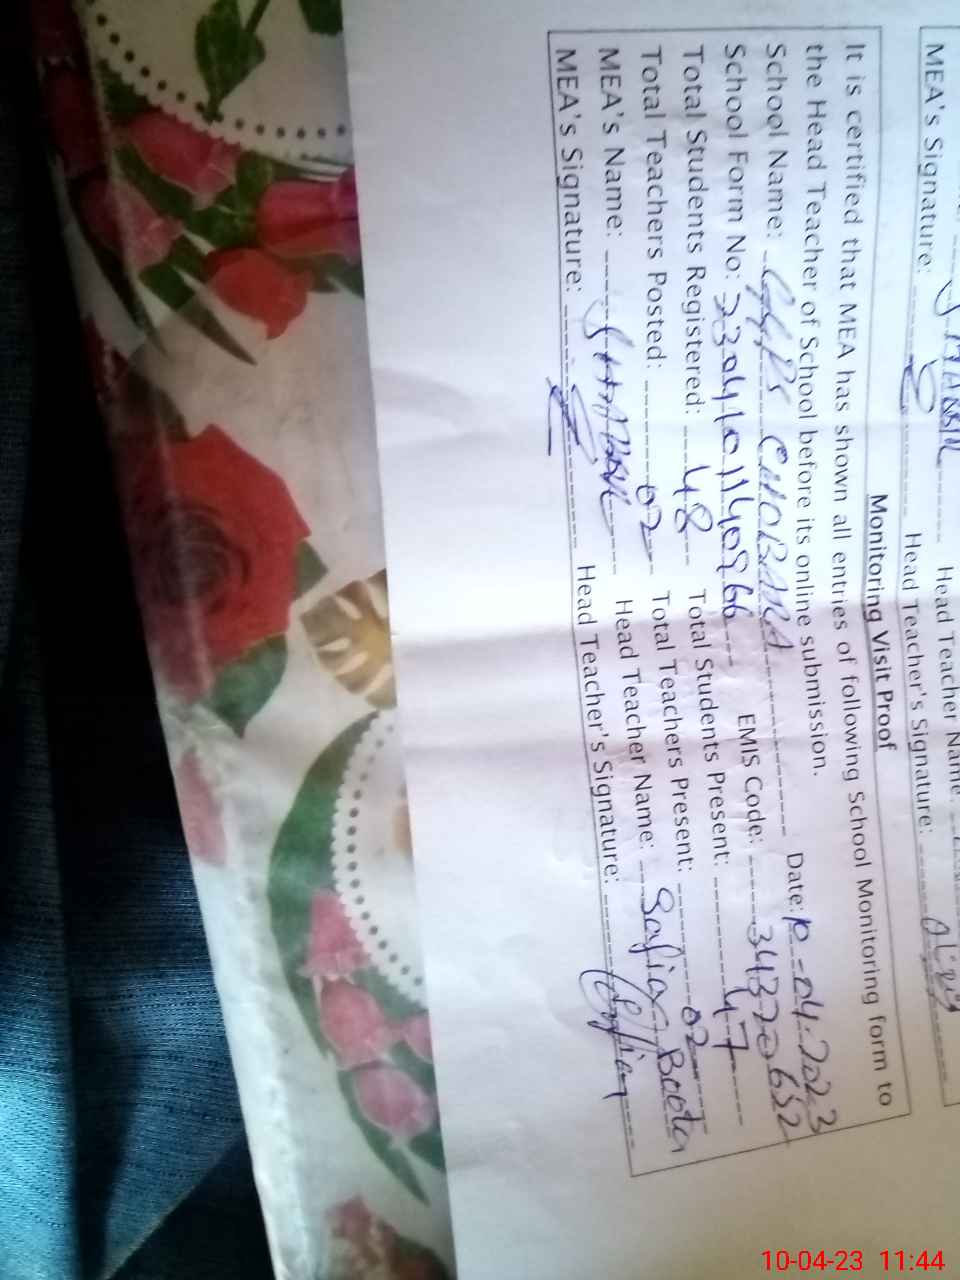 MEA's Signature: Head Teacher Name:
Head Teacher's Signature:
Monitoring Visit Proof
It is certified that MEA has shown all entries of following School Monitoring form to
the Head Teacher of School before its online submission.
School Name: GGPS CHOBARA Date: 10-04-2023
School Form No: EMIS Code: 34370652
Total Students Registered: 48 Total Students Present: 47
Total Teachers Posted: 02 Total Teachers Present: 02
MEA's Name: SHABBIR Head Teacher Name: Safia Boota
MEA's Signature: Head Teacher's Signature: Safia
10-04-23 11:44